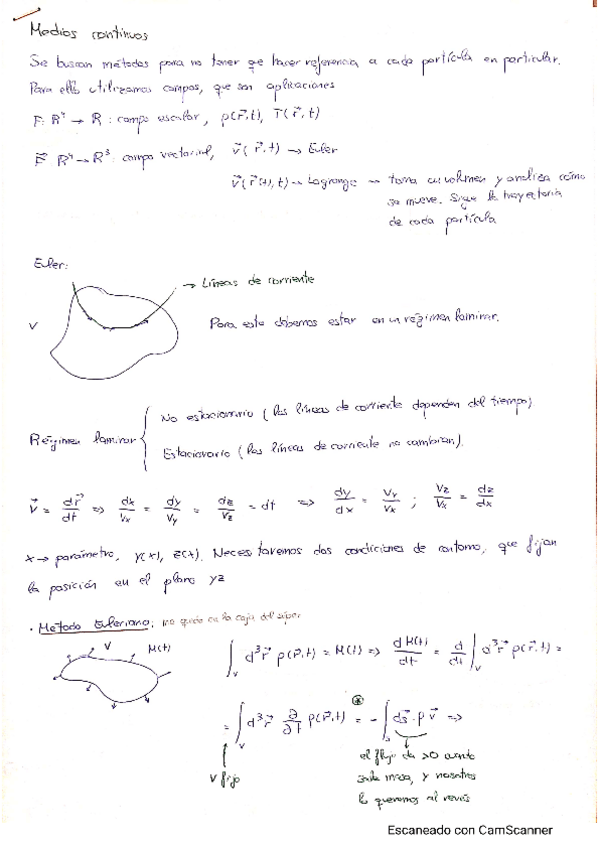 Medios continuos
Se buscan métodos para no tener que hacer referencia a cada partícula en particular.
Para ello utilizamos campos, que son aplicaciones
F: R⁴ → R : campo escalar, ρ(r⃗,t), T(r⃗,t)
F⃗ R⁴ → R³: campo vectorial, v⃗(r⃗,t) → Euler
v⃗(r⃗(t),t) → Lagrange → toma un volumen y analiza cómo
se mueve. Sigue la trayectoria
de cada partícula
Euler:
→ Líneas de corriente
V
Para esto debemos estar en un régimen laminar.
Régimen laminar
No estacionario (las líneas de corriente dependen del tiempo)
Estacionario (las líneas de corriente no cambian).
v⃗ = dr⃗/dt ⇒ dx/Vx = dy/Vy = dz/Vz = dt ⇒ dy/dx = Vy/Vx ; Vz/Vx = dz/dx
x → parámetro, y(x), z(x). Necesitaremos dos condiciones de contorno, que fijan
la posición en el plano yz
· Método Euleriano:
V M(t)
∫_V d³r⃗ ρ(r⃗,t) = M(t) ⇒ dM(t)/dt = d/dt ∫_V d³r⃗ ρ(r⃗,t) =
= ∫_V d³r⃗ ∂/∂t ρ(r⃗,t) = - ∫ ds⃗ · ρ v⃗ ⇒
V fijo
el flujo da >0 cuando
sale masa, y nosotros
lo queremos al revés
Escaneado con CamScanner